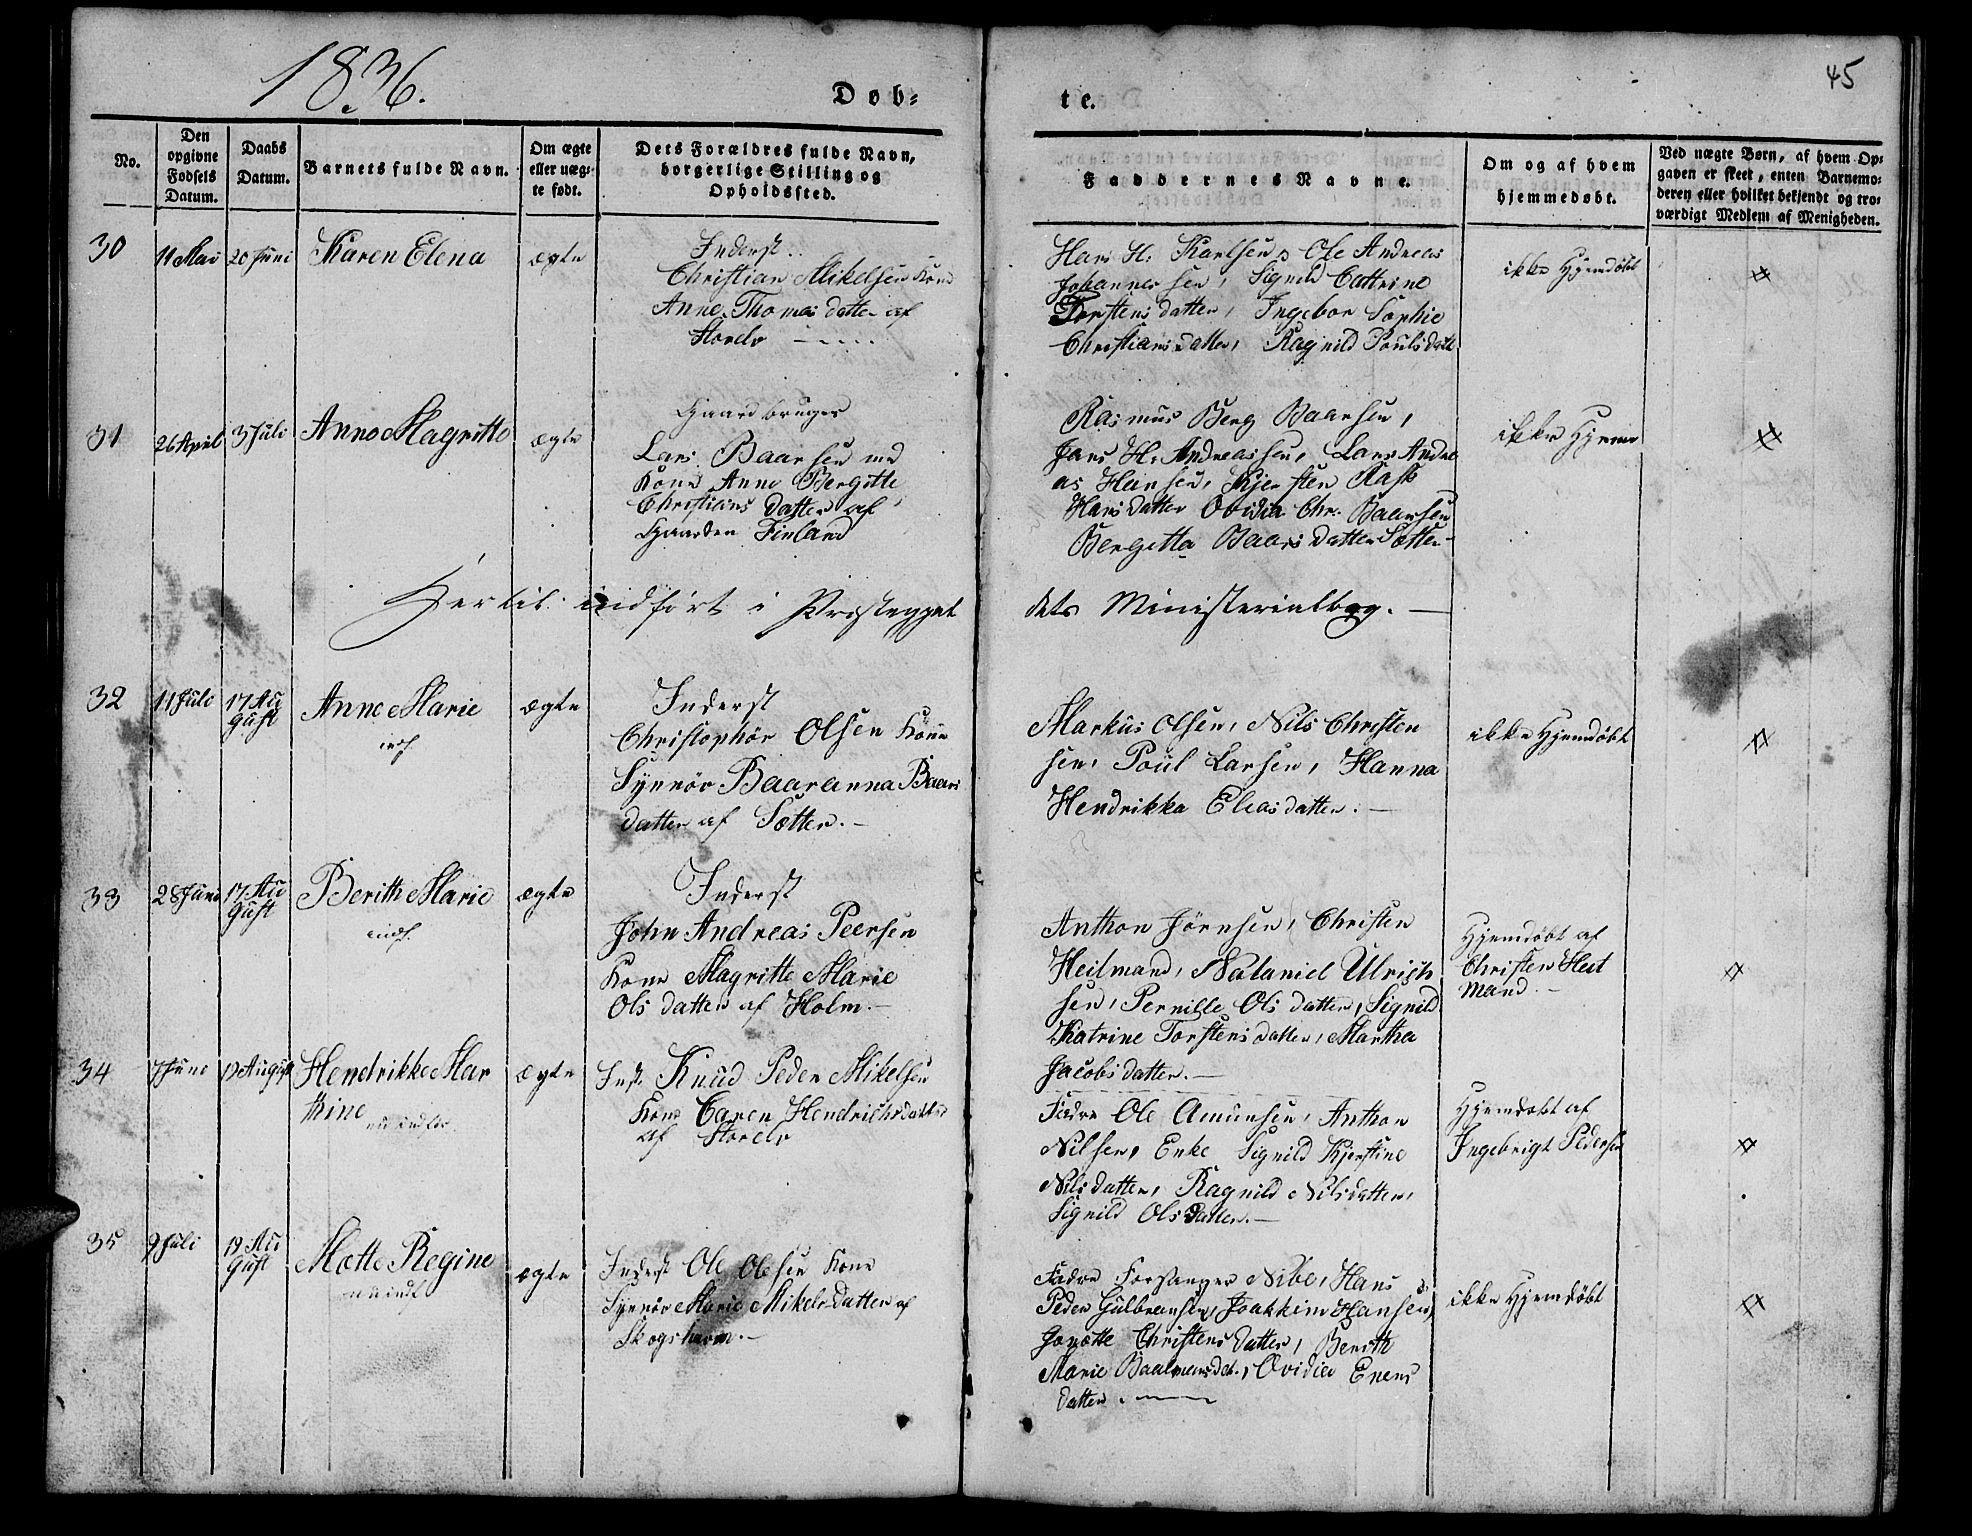 1836.
Døb-
te.
45
No.
Den
opgivne
Fødsels
Datum.
Daabs
Datum.
Barnets fulde Navn.
Om ægte
eller uæg-
te født.
Dets Forældres fulde Navn,
borgerlige Stilling og
Opholdssted.
Faddernes Navne.
Om og af hvem
hjemmedøbt.
Ved uægte Børn, af hvem Op-
gaven er skeet, enten Barnemo-
deren eller hvilket bekjendt og tro-
værdigt Medlem af Menigheden.
30
11 Mai
20 Juni
Karen Elena
ægte
Inderst
Christian Mikelsen Kone
Anne Thomas datter af
Storelv
Hans H. Karlsen, Ole Andreas
Johannes sen, Signild Cattrine
Torstens datter, Ingebor Sophie
Christians datter, Ragnild Poulsdatt
ikke Hjemdøbt
31
26 April
3 Juli
Anne Magritte
ægte
Gaardbruger
Lars Baarsen md
Kone Anne Bergitte
Christians datter af
Gaarden Finland
Rasmus Berg Baarsen,
Jens H. Andreassen, Lars Andre
as Hansen, Kjersten Rask
Hansdatter Ovidia Chr. Baarsen
Bergitta Baars datter Sætter
ikke Hjem
Hertil indført i Præstegjel
dets Ministerialbog.
32
11 Juli
17 Au
gust
Anne Marie
indf.
ægte
Inderst
Christophør Olsen Kone
Synnøv Baaranna Baars
datter af Sætter.
Markus Olsen, Nils Christen
sen, Poul Larsen, Hanna
Hendrikka Eliasdatter.
ikke Hjemdøbt
33
28 Juni
17 Au
gust
Berith Marie
indf.
ægte
Inderst
John Andreas Peersen
Kone Magritte Marie
Ols datter af Holm.
Anthon Jørnsen, Christen
Heitmand, Nataniel Ulrich
sen, Pernille Ols datter, Signild
Katrine Torstens datter, Martha
Jacobsdatter.
Hjemdøbt af
Christen Heit
mand.
34
7 Juni
19 August
Hendrikke Mar
thine
ægte
Inst. Knud Peder Mikelsen
Kone Caren Hendrichsdatter
af Storelv
Fadre Ole Amunsen, Anthon
Nilsen, Enke Signild Kjerstine
Nilsdatter, Ragnild Nilsdatter,
Signild Olsdatter.
Hjemdøbt af
Ingebrigt Pedersen
35
9 Juli
19 Au
gust
Mette Regine
ægte
Inderst Ole Olsen Kone
Synnøv Marie Mikels datter af
Skogsholm.
Fadre Forsanger Nibe, Hans
Peder Gulbransen, Joakkim Hansen,
Janette Christens datter, Berith
Marie Datter, Ovidia Enens
datter.
ikke Hjemdøbt